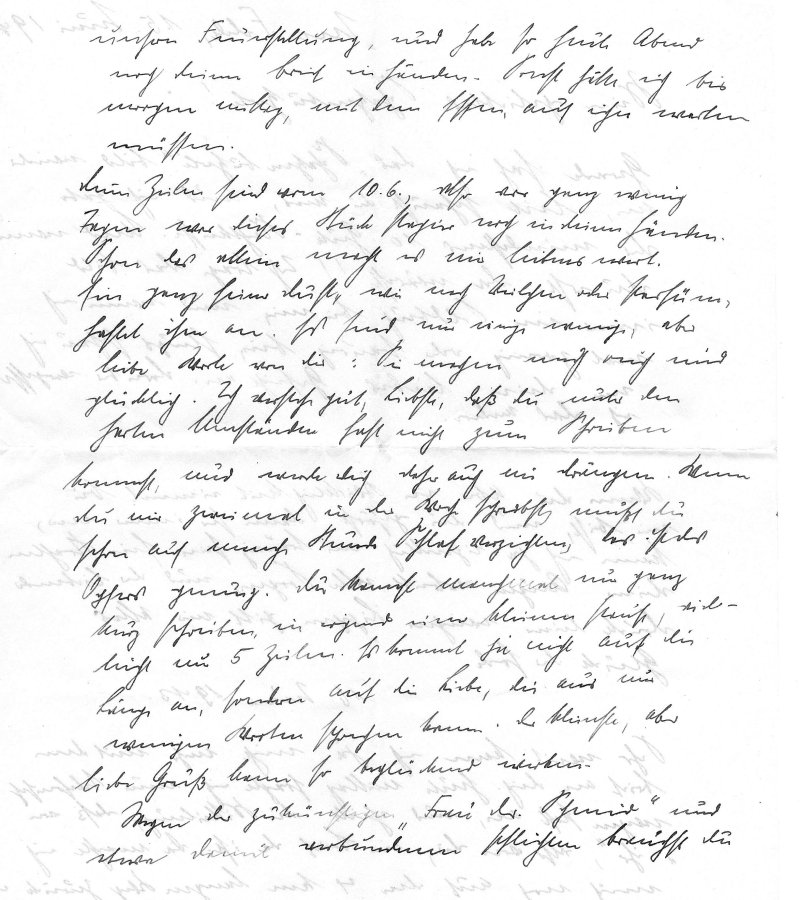 unserer Feuerstellung, und habe so heute Abend
noch deinen Brief in Händen. Sonst hätte ich bis
morgen mittag, mit dem Essen, auf ihn warten
müssen.
Deine Zeilen sind vom 10.6., also vor ganz wenig
Tagen war dieses Stück Papier noch in deinen Händen.
Schon das allein macht es mir liebenswert.
Ein ganz feiner Duft, wie nach Veilchen oder Parfüm,
haftet ihm an. Es sind nur einige wenige, aber
liebe Worte von dir: Sie machen mich reich und
glücklich. Ich verstehe gut, Liebste, daß du unter den
harten Umständen fast nicht zum Schreiben
kommst, und werde dich daher auch nie drängen. Wenn
du mir zweimal in der Woche schreibst, mußt du
schon auf manche Stunde Schlaf verzichten, das ist des
Opfers genug. Du kannst manchmal nur ganz
kurz schreiben, in irgend einer kleinen Pause, viel-
leicht nur 5 Zeilen. Es kommt ja nicht auf die
Länge an, sondern auf die Liebe, die aus nur
wenigen Worten sprechen kann. Der kleinste, aber
liebe Gruß kann so beglückend wirken.
Wegen der zukünftigen „Frau Dr. Schmid" und
etwa damit verbundenen Pflichten brauchst du